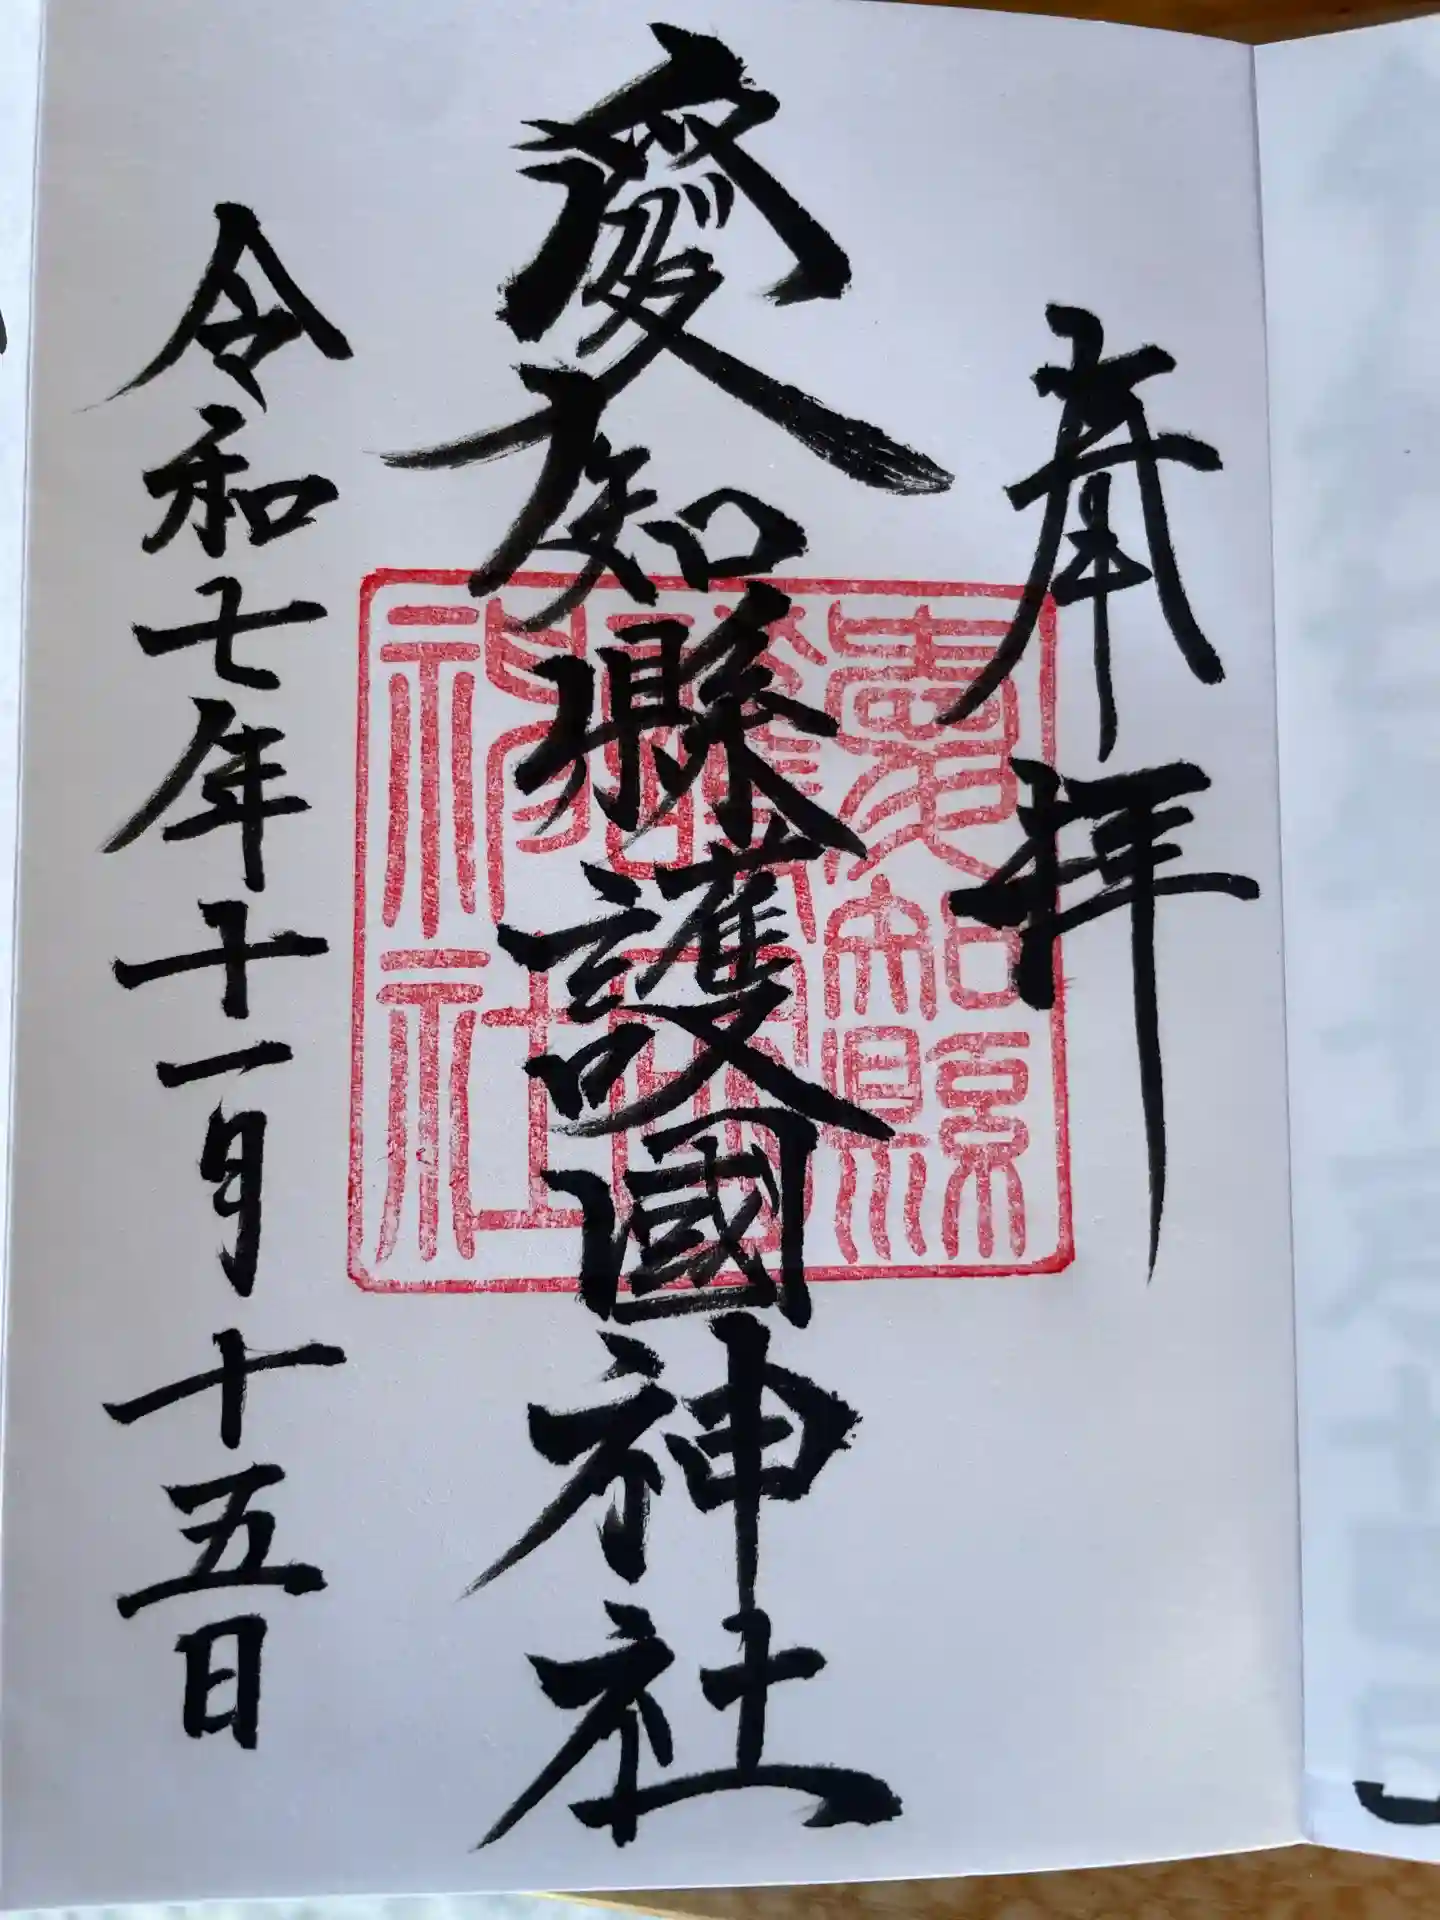 奉拝
愛知縣護國神社
愛知縣護國神社
令和七年十一月十五日